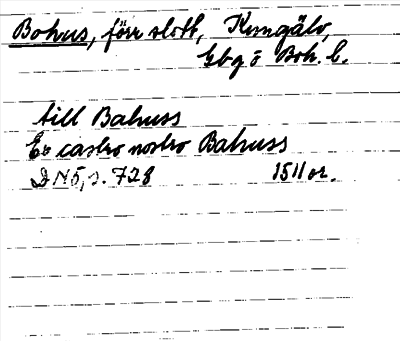 Bohus, förr slott, Kungälv,
Gbg o Boh. l.
till Bahuss
Ex castro nostro Bahuss
DN 5, s. 728 1511 or.